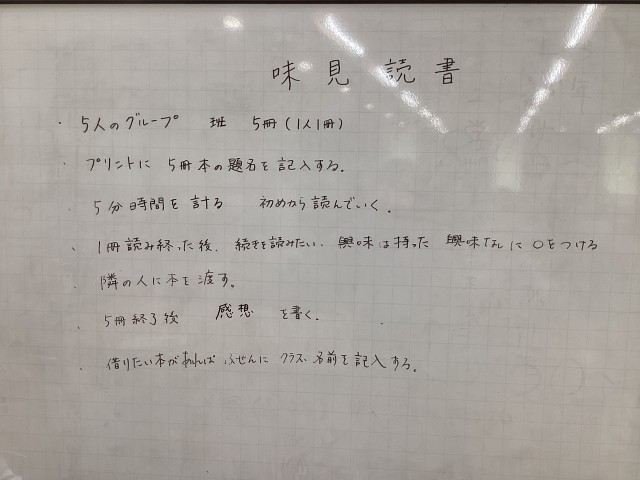 味見読書
・5人のグループ 班 5冊(1人1冊)
・プリントに 5冊本の題名を記入する.
・5分時間を計る 初めから読んでいく.
・1冊読み終った後. 続きを読みたい. 興味は持った 興味なしに ○をつける
・隣の人に本を渡す.
・5冊終了後 感想 を書く.
・借りたい本があれば ふせんに クラス. 名前を記入する.